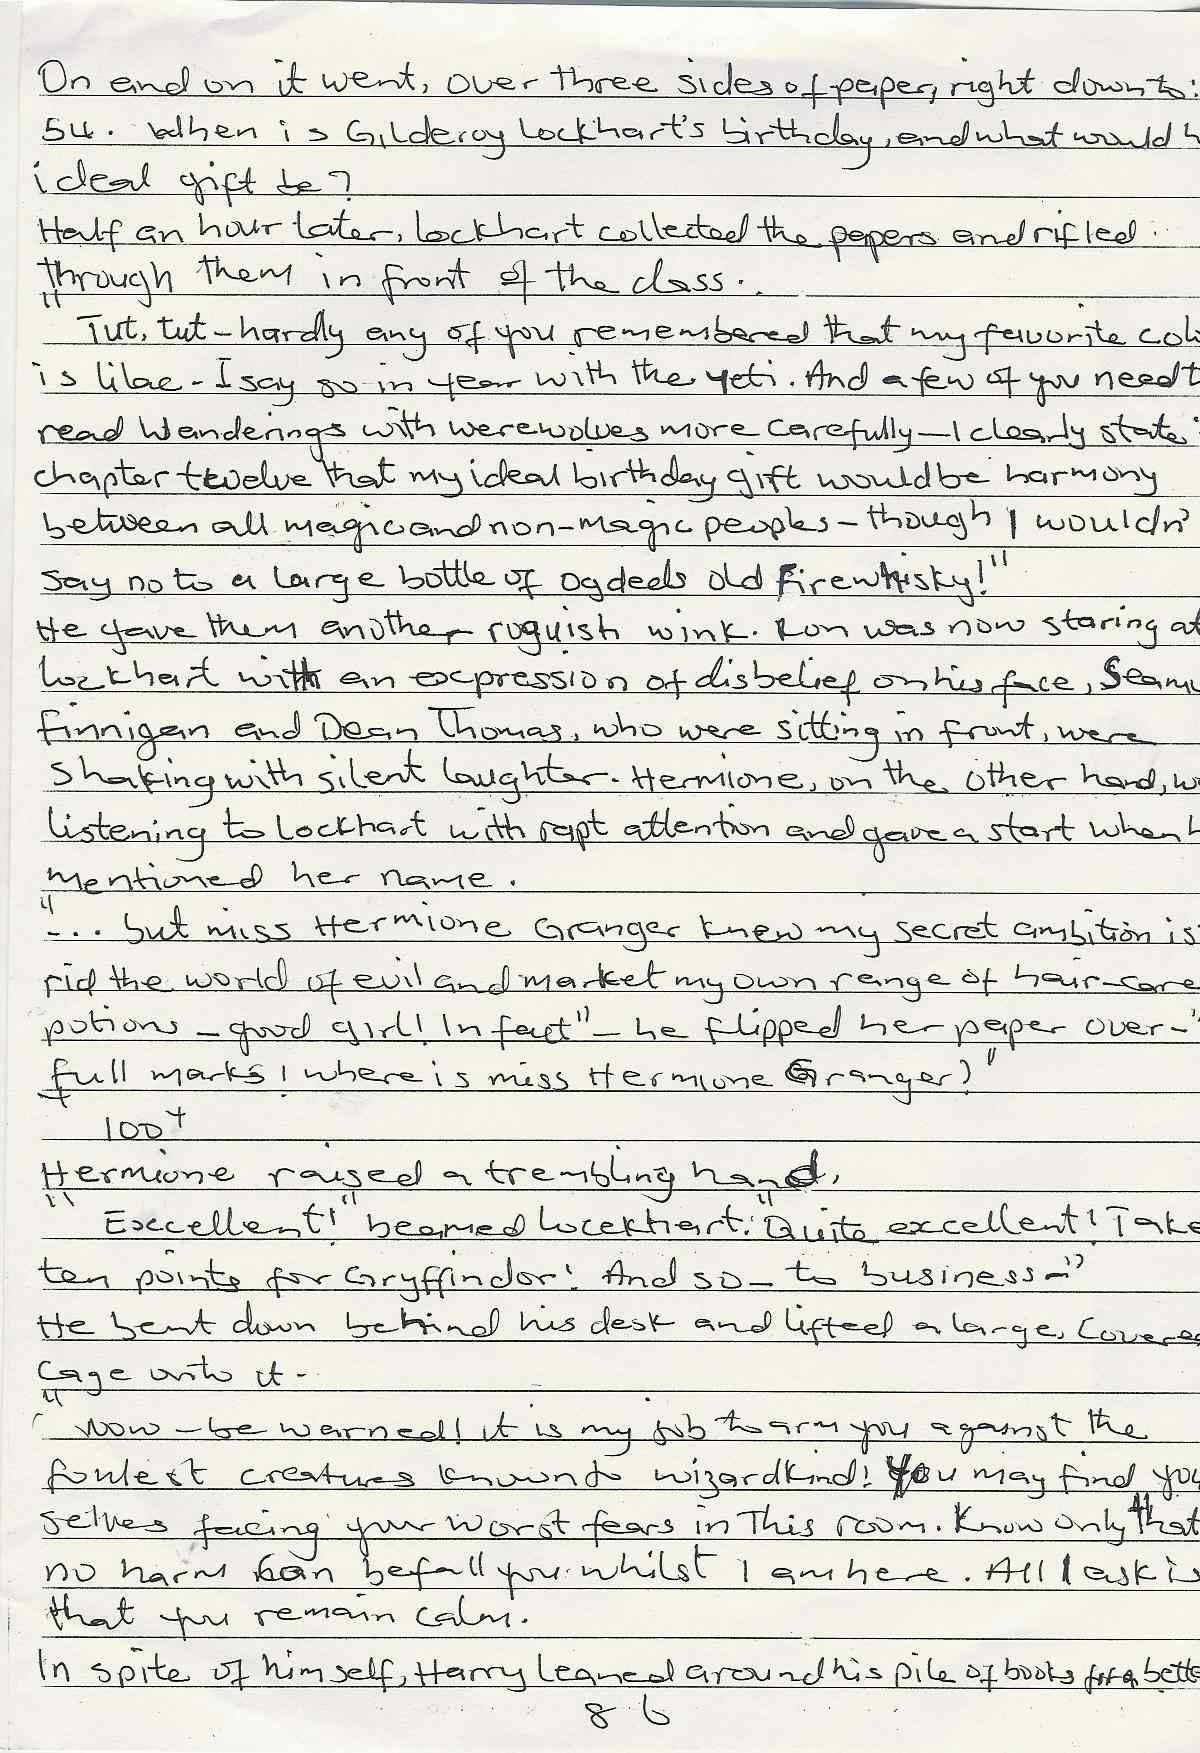 On and on it went, over three sides of paper, right down to:
54. When is Gilderoy Lockhart's birthday, and what would h
ideal gift be?
Half an hour later, Lockhart collected the papers and rifled
through them in front of the class.
"Tut, tut - hardly any of you remembered that my favorite col
is lilac - I say so in year with the yeti. And a few of you need t
read Wanderings with werewolves more carefully - I clearly state i
chapter twelve that my ideal birthday gift would be harmony
between all magic and non-magic peoples - though I wouldn'
say no to a large bottle of ogdeds old Firewhisky!"
He gave them another roguish wink. Ron was now staring at
Lockhart with an expression of disbelief on his face, Seamu
Finnigan and Dean Thomas, who were sitting in front, were
shaking with silent laughter. Hermione, on the other hand, w
listening to Lockhart with rapt attention and gave a start when h
mentioned her name.
"... but miss Hermione Granger knew my secret ambition is
rid the world of evil and market my own range of hair-care
potions - good girl! In fact" - he flipped her paper over - "
full marks! where is miss Hermione Granger?"
100+
Hermione raised a trembling hand,
"Excellent!" beamed Lockhart. "Quite excellent! Take
ten points for Gryffindor! And so - to business -"
He bent down behind his desk and lifted a large, Covered
cage onto it -
"Now - be warned! it is my job to arm you against the
foulest creatures known to wizardkind! You may find you
selves facing your worst fears in This room. Know only that
no harm can befall you whilst I am here. All I ask is
that you remain calm.
In spite of himself, Harry leaned around his pile of books for a bette
86